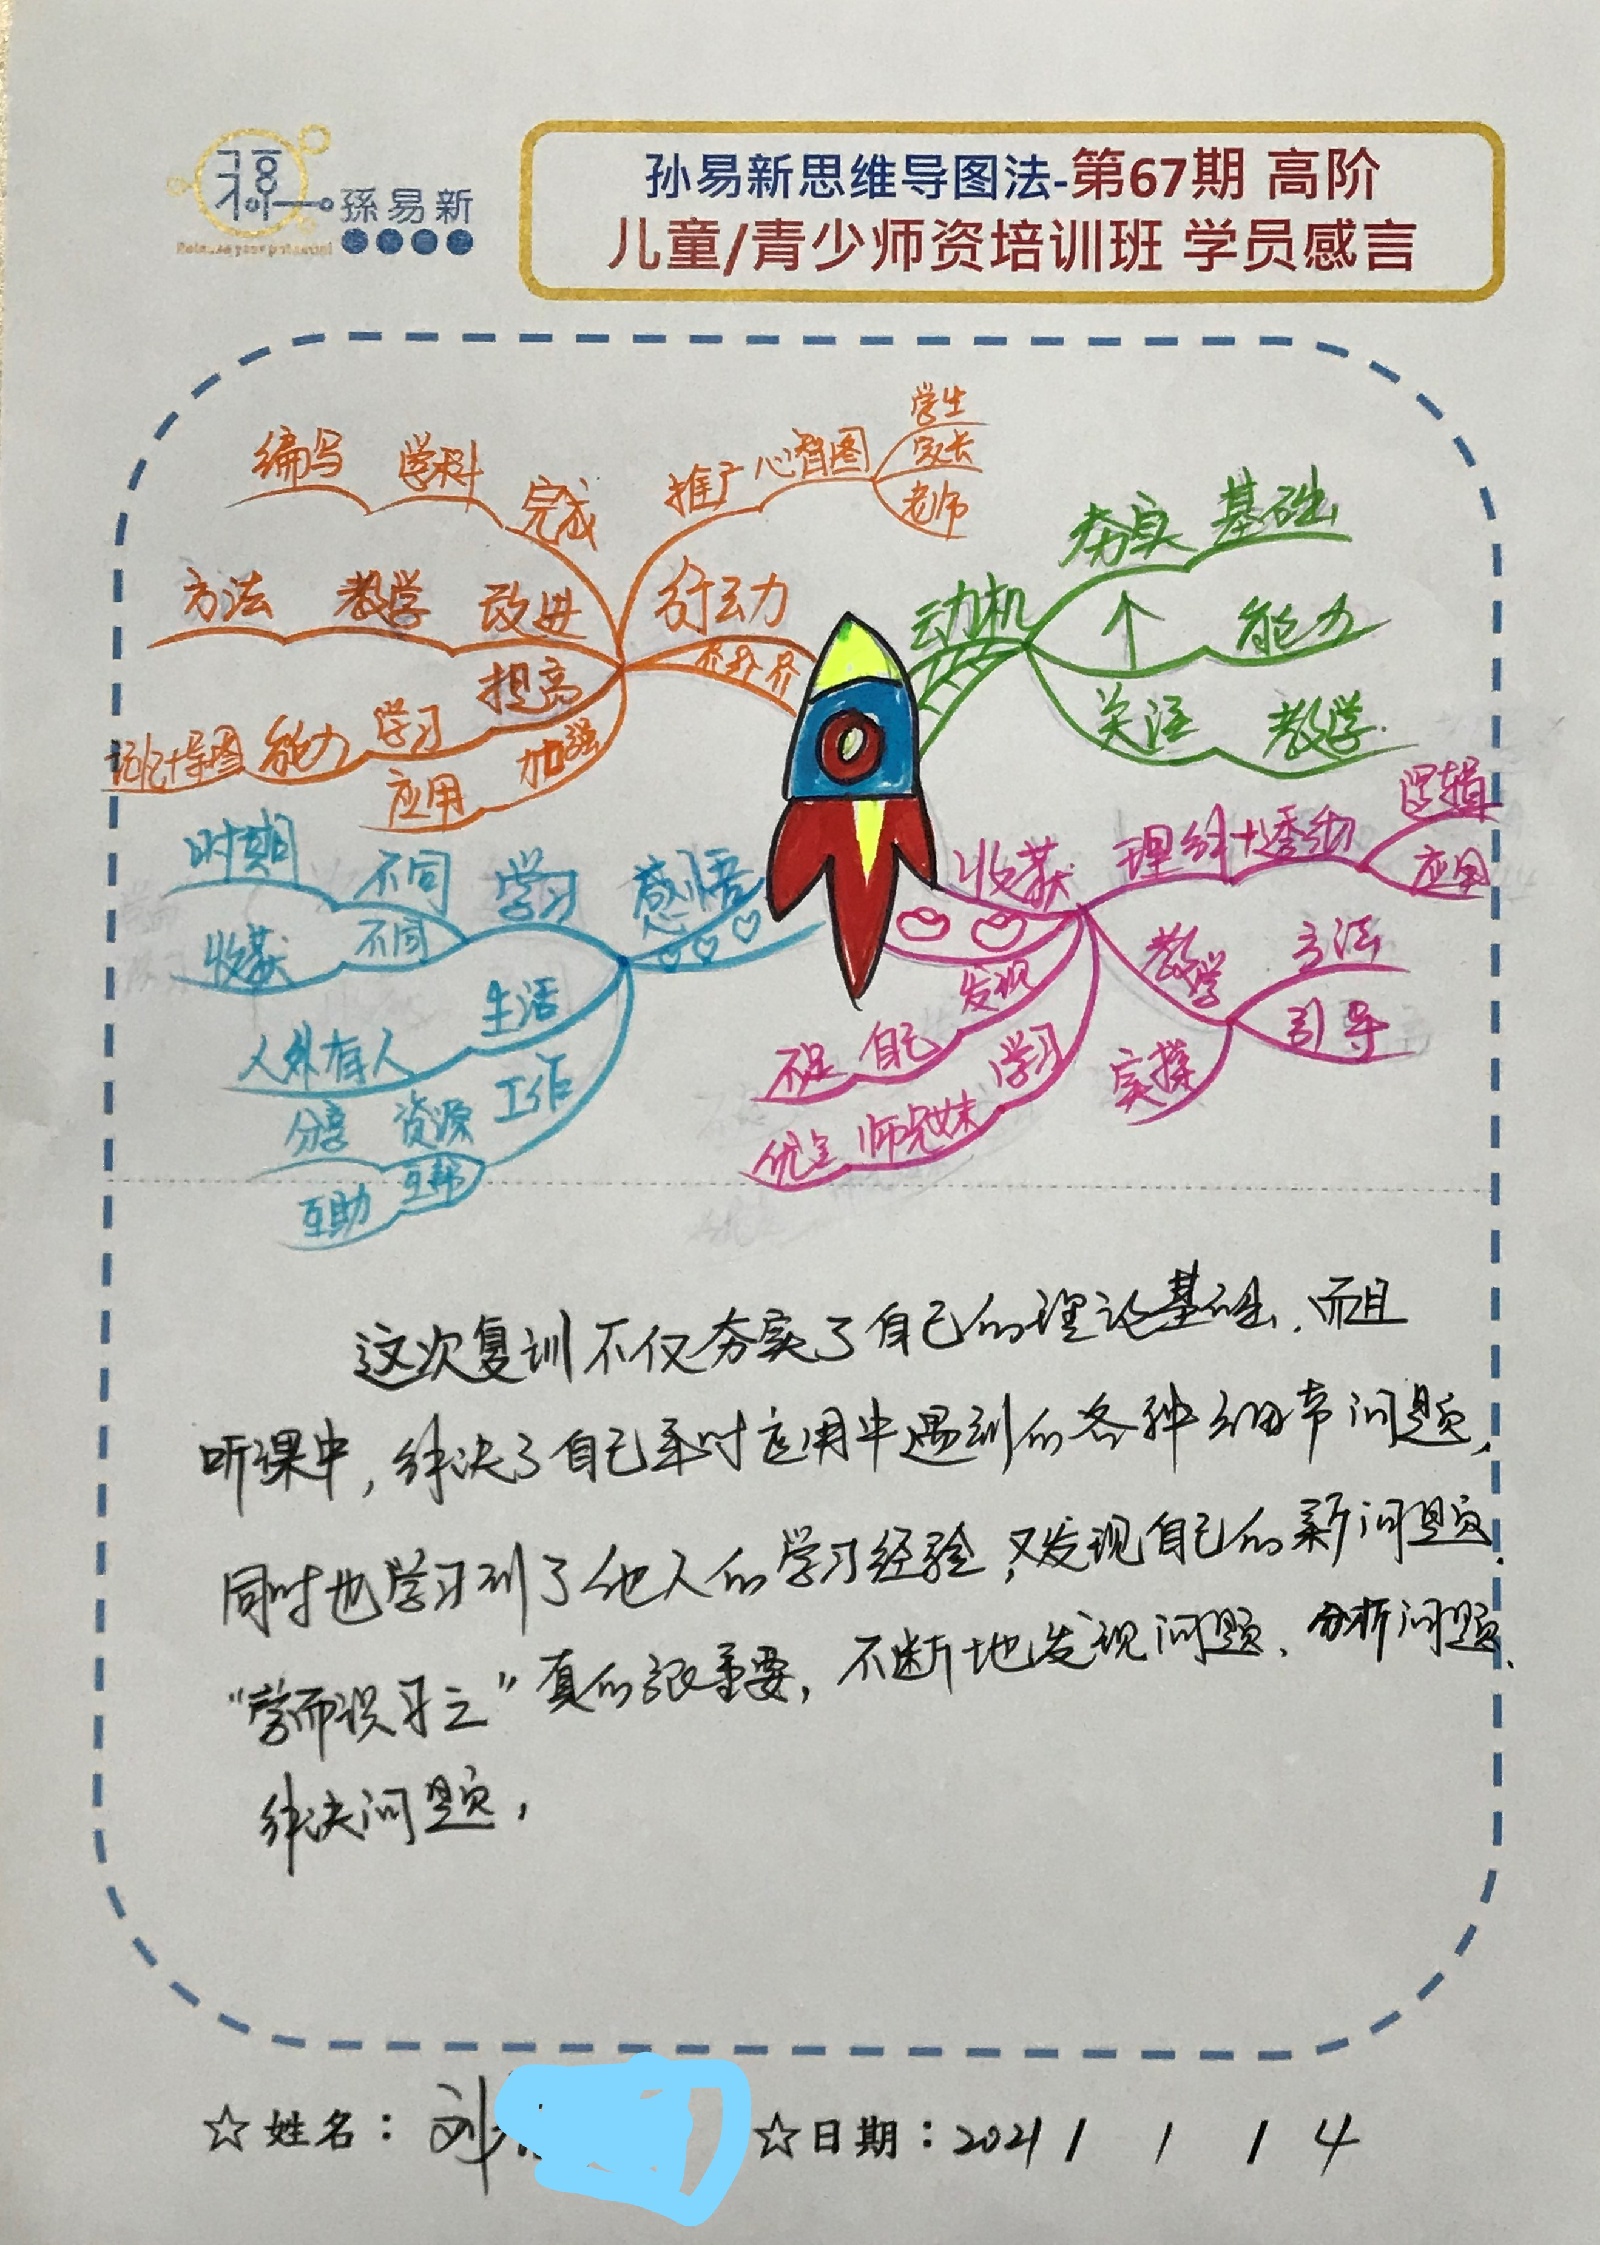 孫易新
孙易新思维导图法-第67期 高阶
儿童/青少师资培训班 学员感言
动机
夯实 基础
↑ 能力
关注 教学
收获
理解+透彻
逻辑
应用
教学
方法
引导
实操
发现 自己 不足
学习 师兄妹 优点
感悟
学习
不同 时期
不同 收获
生活
人外有人
工作
资源 分享
互帮 互助
行动力
推广 心智图
学生
家长
老师
完成 学科 编写
改进 教学 方法
提高 学习 能力
加强 应用
这次复训不仅夯实了自己的理论基础,而且
听课中,解决了自己平时应用中遇到的各种细节问题,
同时也学习到了他人的学习经验,又发现自己的新问题.
“学而识习之”真的很重要,不断地发现问题、分析问题、
解决问题,
☆姓名:刘
☆日期:2021 / 1 / 14